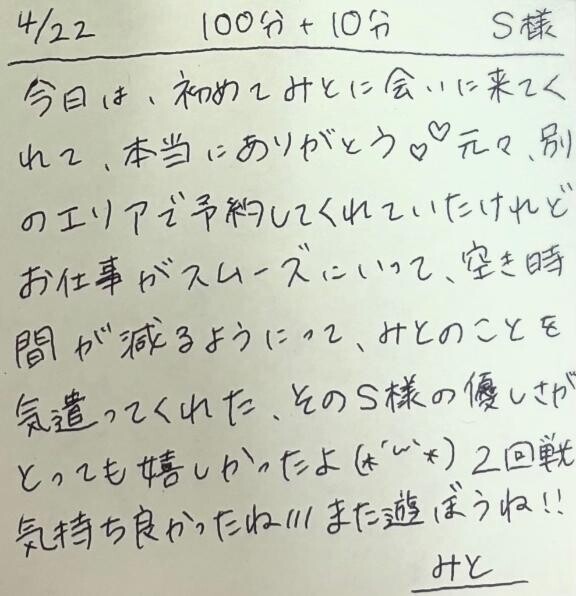 4/22 100分+10分 S様
今日は、初めてみとに会いに来てく
れて、本当にありがとう♡♡元々、別
のエリアで予約してくれていたけれど
お仕事がスムーズにいって、空き時
間が減るようにって、みとのことを
気遣ってくれた、そのS様の優しさが
とっても嬉しかったよ(*´ω`*)2回戦
気持ち良かったね///また遊ぼうね!!
みと